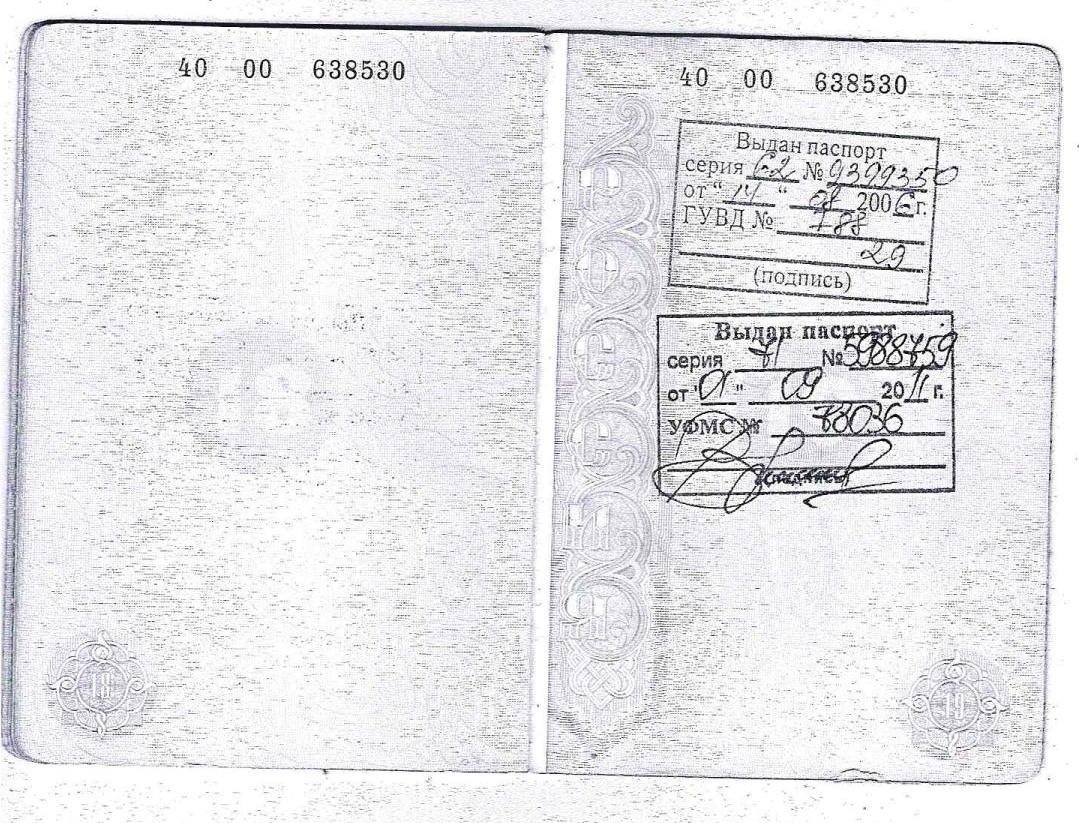 40 00 638530
18
40 00 638530
Выдан паспорт
серия 62 № 9399350
от "14" 08 2006 г.
ГУВД № 788
29
(подпись)
Выдан паспорт
серия 71 № 5988759
от "01" 09 2011 г.
УФМС № 78036
РОССИЯ
19